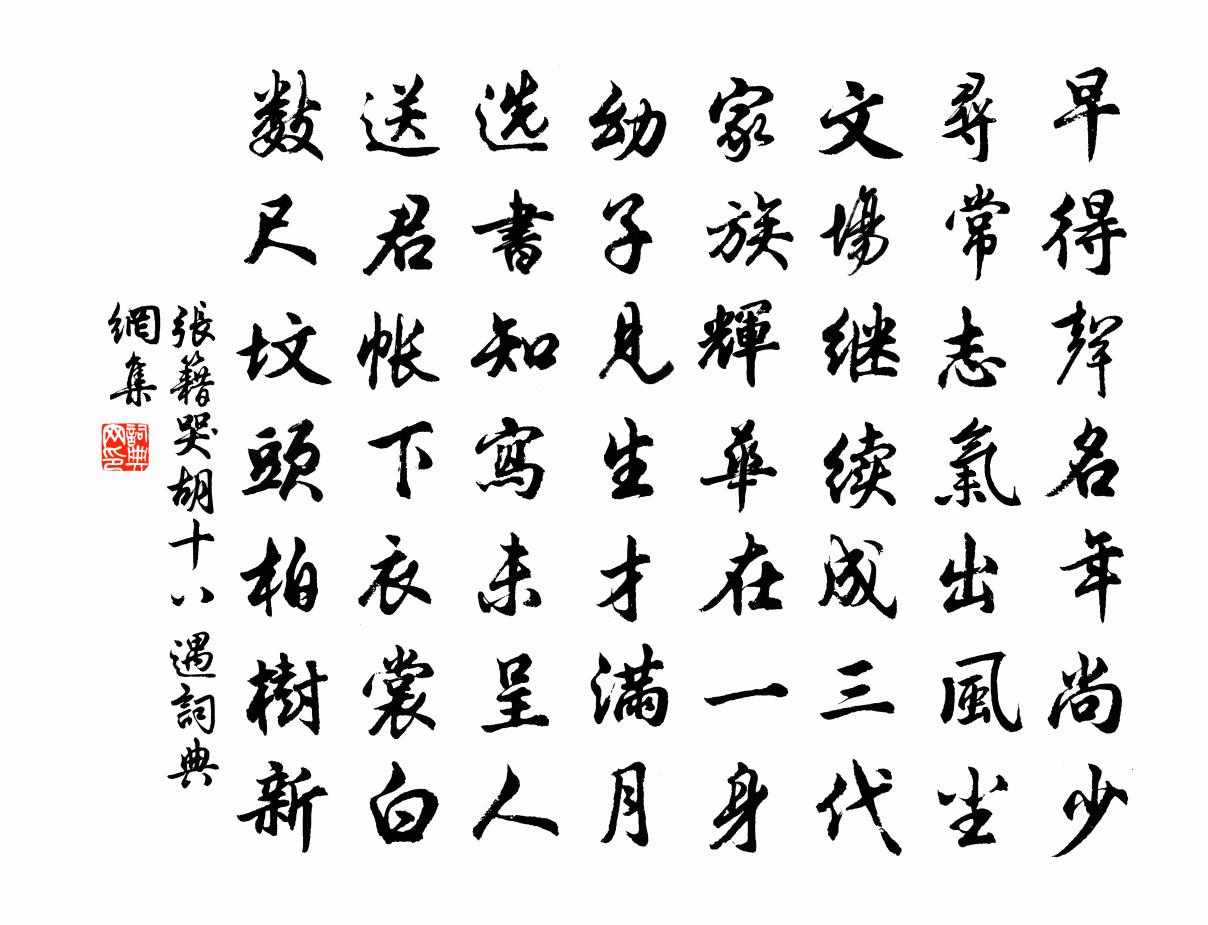 早得聲名年尚少
尋常志氣出風尘
文場继续成三代
家族輝華在一身
幼子見生才满月
选書知寫未呈人
送君帐下衣裳白
数尺坟頭柏樹新
張籍哭胡十八遇詞典
網集
詞典网印